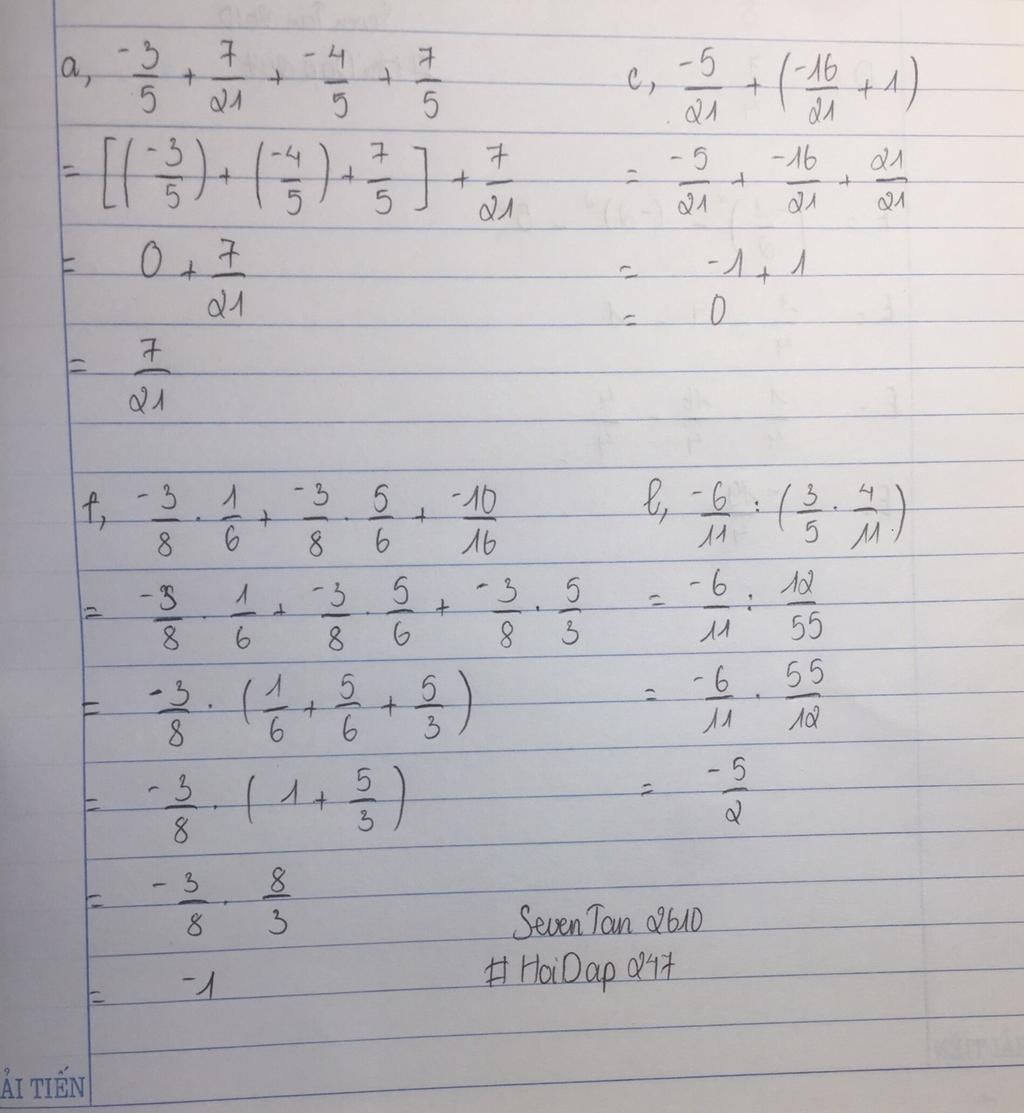 a, -3/5 + 7/21 + -4/5 + 7/5
= [(-3/5) + (-4/5) + 7/5] + 7/21
= 0 + 7/21
= 7/21
c, -5/21 + (-16/21 + 1)
= -5/21 + -16/21 + 21/21
= -1 + 1
= 0
f, -3/8 . 1/6 + -3/8 . 5/6 + -10/16
= -3/8 . 1/6 + -3/8 . 5/6 + -3/8 . 5/3
= -3/8 . (1/6 + 5/6 + 5/3)
= -3/8 . (1 + 5/3)
= -3/8 . 8/3
= -1
b, -6/11 : (3/5 . 4/11)
= -6/11 : 12/55
= -6/11 . 55/12
= -5/2
SevenTan 2610
#HoiDap 247
ẢI TIẾN